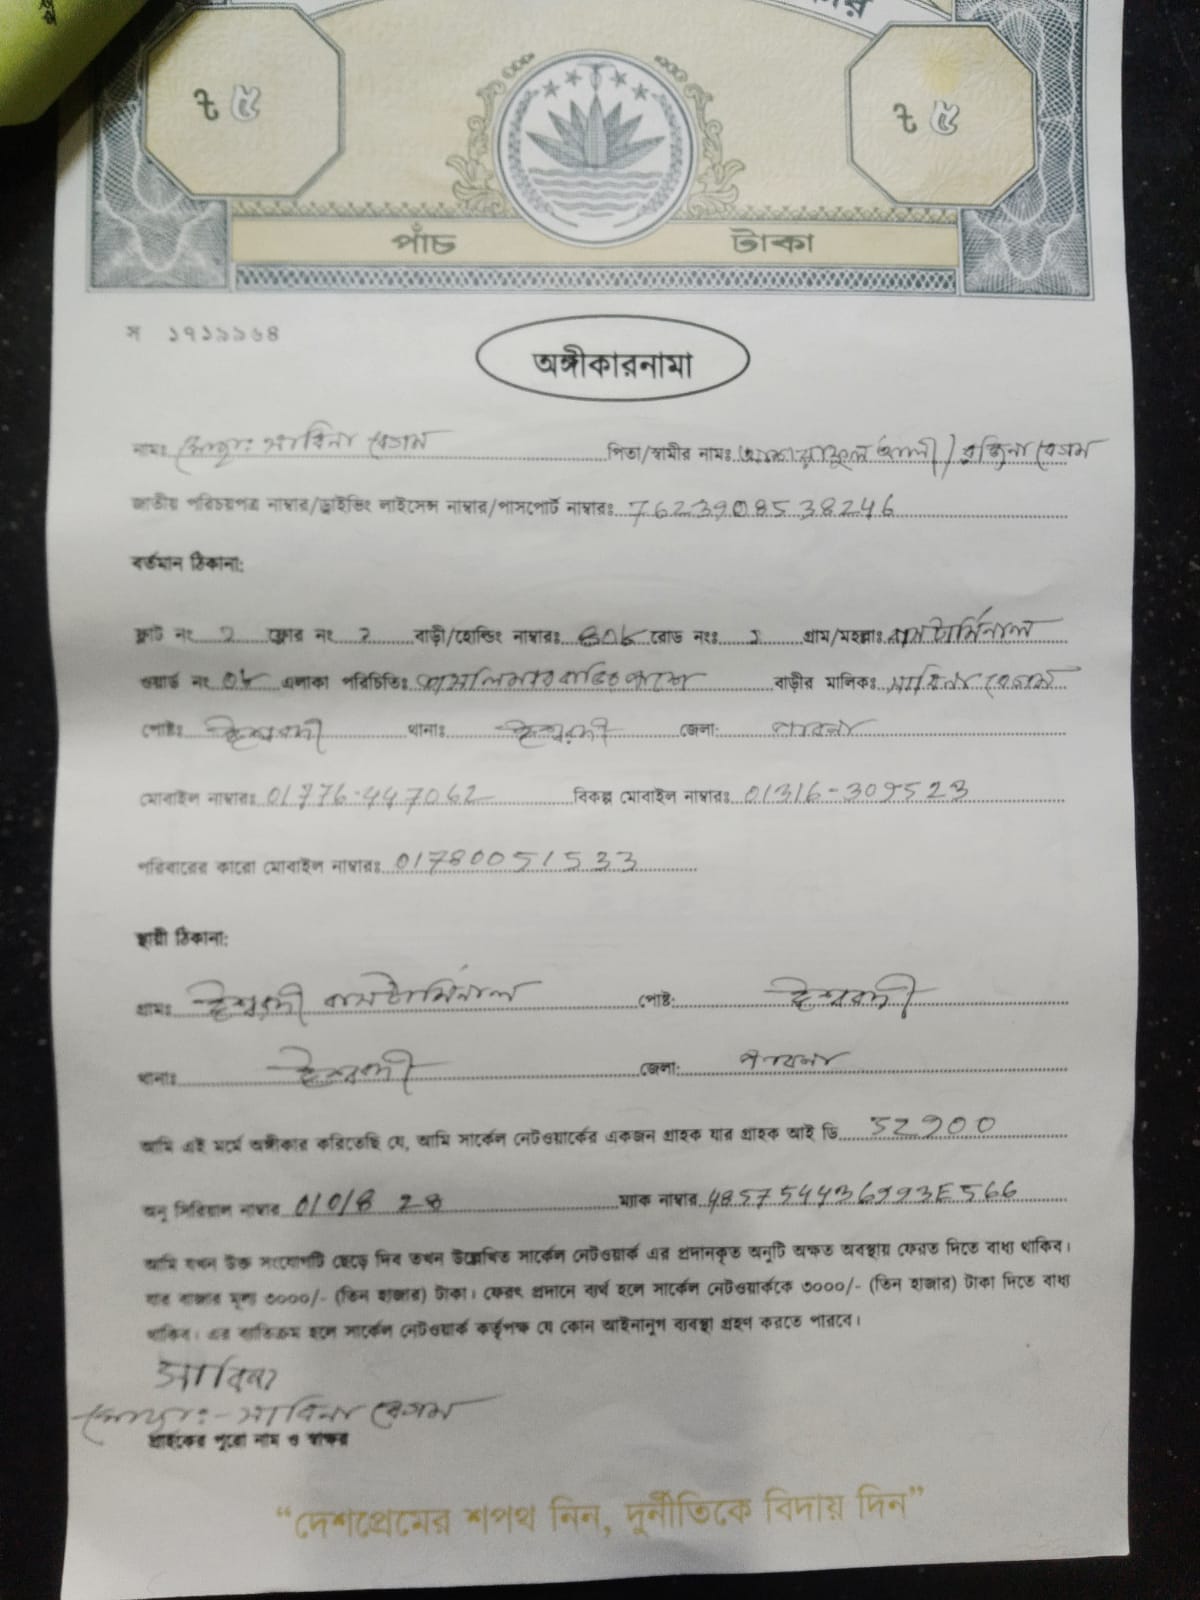 ৳ ৫ ৳ ৫
পাঁচ টাকা
স ১৭১৯৯৬৪
অঙ্গীকারনামা
নামঃ মোছাঃ সাবিনা বেগম পিতা/স্বামীর নামঃ আশরাফুল আলী / রব্জিনা বেগম
জাতীয় পরিচয়পত্র নাম্বার/ড্রাইভিং লাইসেন্স নাম্বার/পাসপোর্ট নাম্বারঃ 7623908538246
বর্তমান ঠিকানা:
ফ্লাট নং ২ ফ্লোর নং ২ বাড়ী/হোল্ডিং নাম্বারঃ ৪০৮ রোড নংঃ ১ গ্রাম/মহল্লাঃ বাসটার্মিনাল
ওয়ার্ড নং ০৮ এলাকা পরিচিতিঃ বাড়ির পাশে বাড়ীর মালিকঃ সাবিনা বেগম
পোষ্টঃ ঈশ্বরদী থানাঃ ঈশ্বরদী জেলা: পাবনা
মোবাইল নাম্বারঃ 01776-447062 বিকল্প মোবাইল নাম্বারঃ 01316-309523
পরিবারের কারো মোবাইল নাম্বারঃ 01780051533
স্থায়ী ঠিকানা:
গ্রামঃ ঈশ্বরদী বাসটার্মিনাল পোষ্ট: ঈশ্বরদী
থানাঃ ঈশ্বরদী জেলা: পাবনা
আমি এই মর্মে অঙ্গীকার করিতেছি যে, আমি সার্কেল নেটওয়ার্কের একজন গ্রাহক যার গ্রাহক আই ডি 52900
অনু সিরিয়াল নাম্বার 010/8 28 ম্যাক নাম্বার 485754436993E566
আমি যখন উক্ত সংযোগটি ছেড়ে দিব তখন উল্লেখিত সার্কেল নেটওয়ার্ক এর প্রদানকৃত অনুটি অক্ষত অবস্থায় ফেরত দিতে বাধ্য থাকিব।
যার বাজার মূল্য ৩০০০/- (তিন হাজার) টাকা। ফেরৎ প্রদানে ব্যর্থ হলে সার্কেল নেটওয়ার্ককে ৩০০০/- (তিন হাজার) টাকা দিতে বাধ্য
থাকিব। এর ব্যতিক্রম হলে সার্কেল নেটওয়ার্ক কর্তৃপক্ষ যে কোন আইনানুগ ব্যবস্থা গ্রহণ করতে পারবে।
সাবিনা
মোছাঃ- সাবিনা বেগম
গ্রাহকের পুরো নাম ও স্বাক্ষর
“দেশপ্রেমের শপথ নিন, দুর্নীতিকে বিদায় দিন”